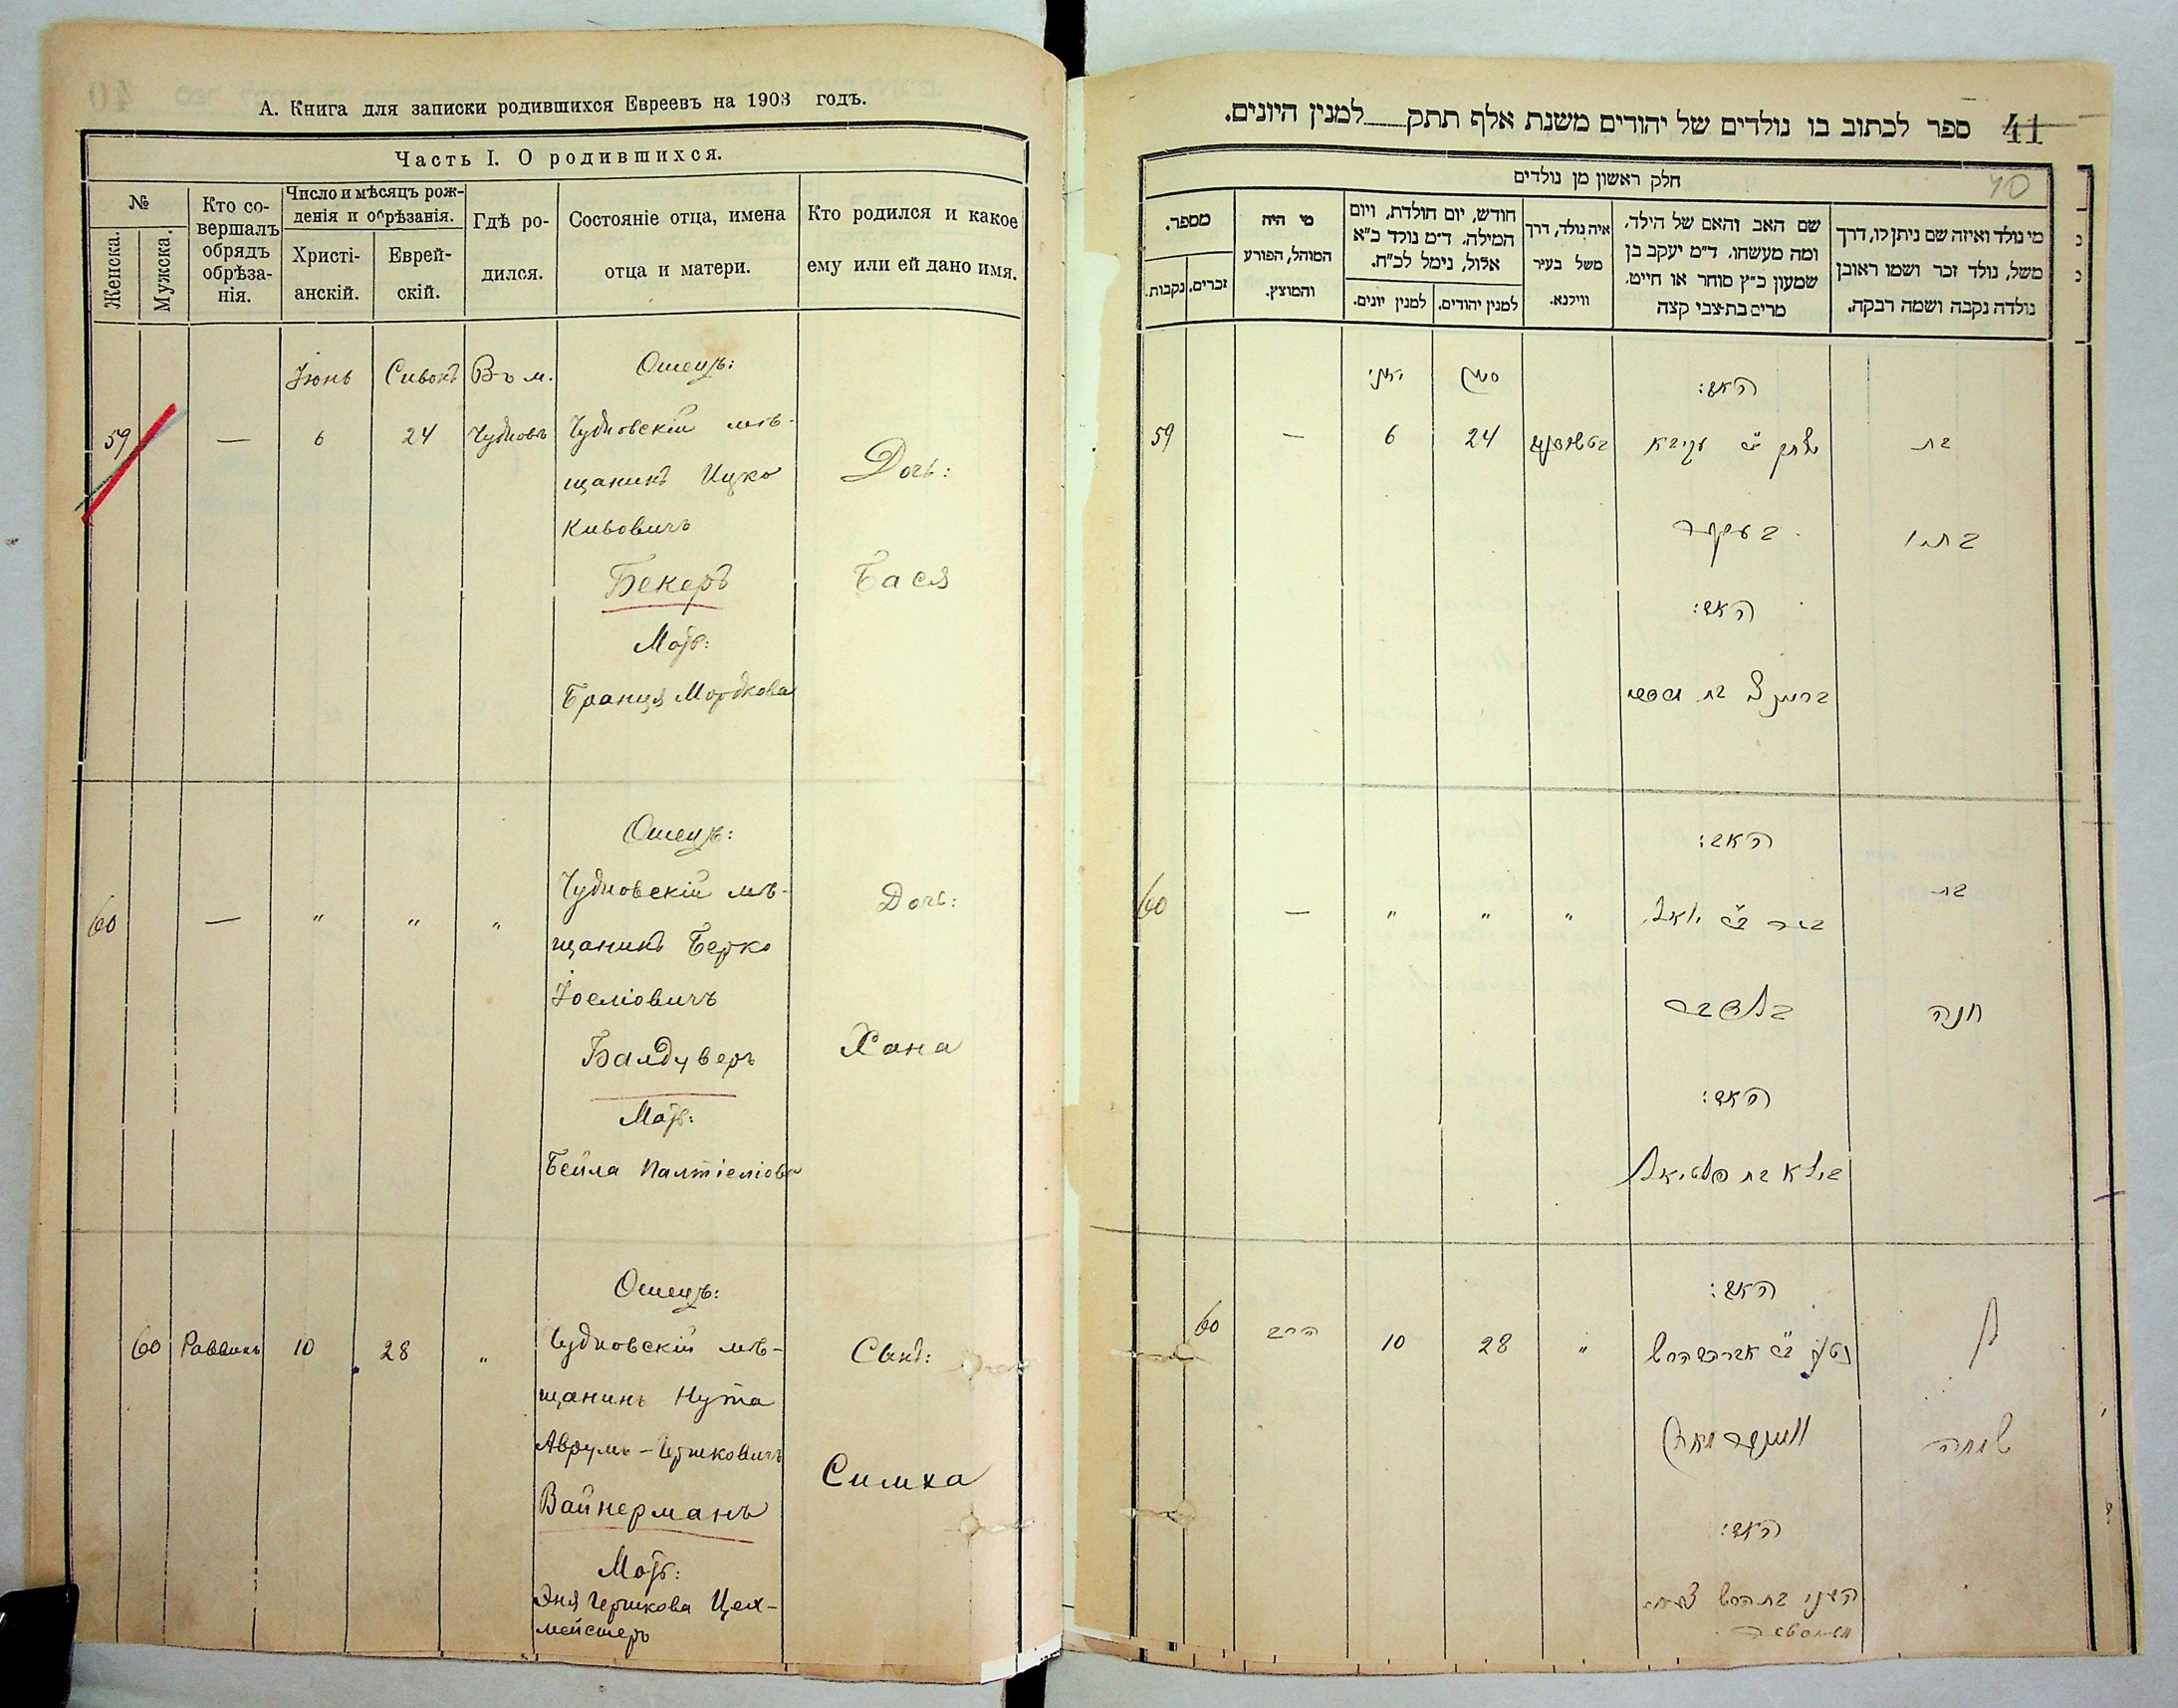 А. Книга для записки родившихся Евреевъ на 1903 годъ.
Часть I. О родившихся.
№
Женска.
Мужска.
Кто со-
вершалъ
обрядъ
обрѣза-
нія.
Число и мѣсяцъ рож-
денія и обрѣзанія.
Христі-
анскій.
Еврей-
скій.
Гдѣ ро-
дился.
Состояніе отца, имена
отца и матери.
Кто родился и какое
ему или ей дано имя.
59
—
Іюнь
6
Сивонъ
24
Въ м.
Чудновъ
Отецъ:
Чудновскій мѣ-
щанинъ Ицко
Кивовичъ
Бекеръ
Мать:
Бранця Мордкова
Дочь:
Бася
60
—
"
"
"
Отецъ:
Чудновскій мѣ-
щанинъ Берко
Іосліовичъ
Балдуверъ
Мать:
Бейла Палтіеліова
Дочь:
Хана
60
Раввинъ
10
28
"
Отецъ:
Чудновскій мѣ-
щанинъ Нута
Аврумъ-Гершковичъ
Вайнерманъ
Мать:
Эня Гершкова Цех-
мейстеръ
Сынъ:
Симха
41 ספר לכתוב בו נולדים של יהודים משנת אלף תתק למנין היונים.
40
חלק ראשון מן נולדים
מי נולד ואיזה שם ניתן לו, דרך
משל, נולד זכר ושמו ראובן
נולדה נקבה ושמה רבקה.
שם האב והאם של הילד,
ומה מעשהו, ד"מ יעקב בן
שמעון כ"ץ סוחר או חייט,
מרים בת צבי קצה
איה נולד, דרך
משל בעיר
ווילנא.
חודש, יום הולדת, ויום
המילה, ד"מ נולד כ"א
אלול, נימל לכ"ח.
למנין יהודים.
למנין יונים.
מי היה
המוהל, הפורע
והמוצץ.
מספר.
זכרים.
נקבות.
בת
האב:
סיון
יוני
24
6
—
59
יצחק ב"ר עקיבא
בעקער
האם:
בת
חנה
האב:
בער ב"ר יואל
האם:
ביילא בת פלטיאל
"
"
"
—
60
שמחה
האב:
נטע ב"ר אברהם הרש
וויינערמאן
האם:
"
28
10
הרב
60